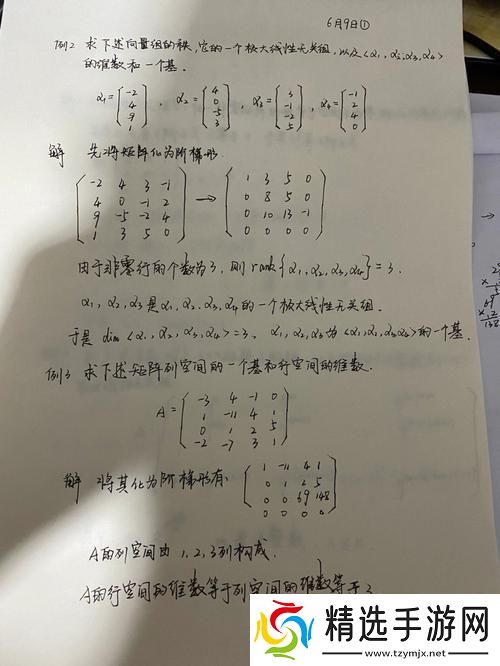 6月9日①
例2 求下述向量组的秩,它的一个极大线性无关组,以及<α₁,α₂,α₃,α₄>
的维数和一个基.
α₁=(-2 4 9 1), α₂=(4 0 -5 3), α₃=(3 -1 -2 5), α₄=(-1 2 4 0)
解 先将矩阵化为阶梯形.
-2 4 3 -1 → 1 3 5 0
4 0 -1 2 0 8 5 0
9 -5 -2 4 0 10 13 -1
1 3 5 0 0 0 0 0
由于非零行的个数为3,则rank{α₁,α₂,α₃,α₄}=3.
α₁,α₂,α₃是α₁,α₂,α₃,α₄的一个极大线性无关组.
于是 dim<α₁,α₂,α₃,α₄>=3, α₁,α₂,α₃为<α₁,α₂,α₃,α₄>的一个基.
例3 求下述矩阵列空间的一个基和行空间的维数.
A=
-3 4 -1 0
1 -11 4 1
0 1 2 5
-2 -7 3 1
解 将其化为阶梯形有
1 -11 4 1
0 1 2 5
0 0 69 148
0 0 0 0
A的列空间由1,2,3列构成.
A的行空间的维数等于列空间的维数等于3
精选手游网
www.tzymjx.net